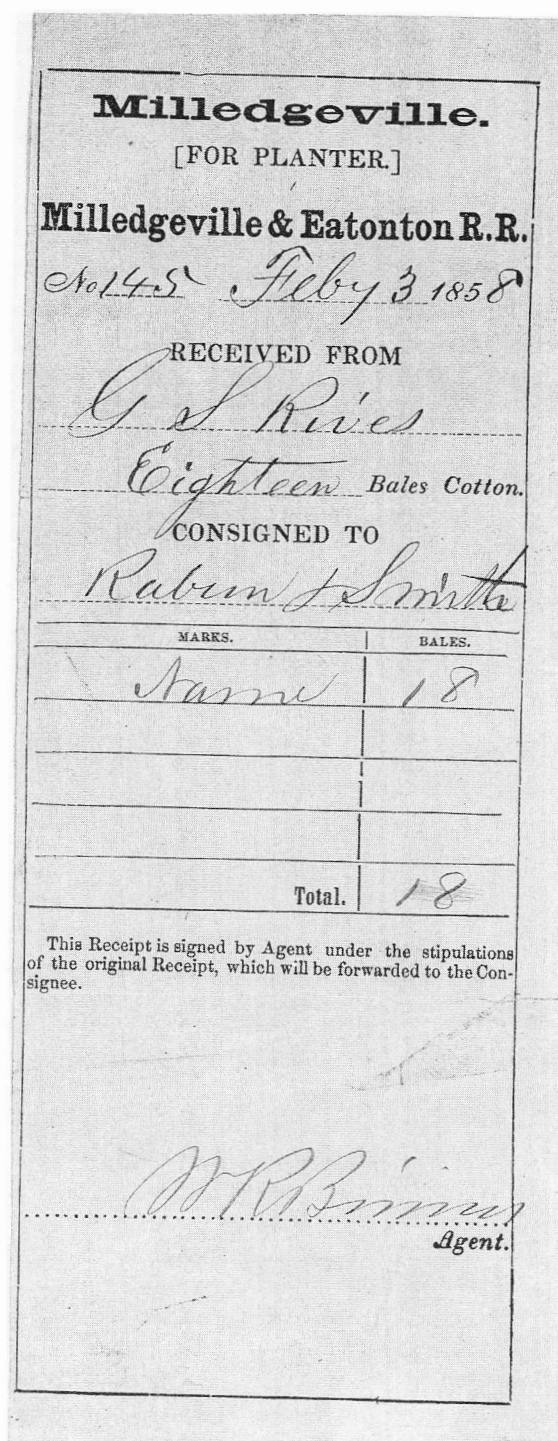 Milledgeville.
[FOR PLANTER.]
Milledgeville & Eatonton R.R.
No 145 Feby 3 1858
RECEIVED FROM
G S Rives
Eighteen Bales Cotton.
CONSIGNED TO
Rabun & Smith
MARKS. BALES.
Name 18
Total. 18
This Receipt is signed by Agent under the stipulations
of the original Receipt, which will be forwarded to the Con-
signee.
W R Binns
Agent.